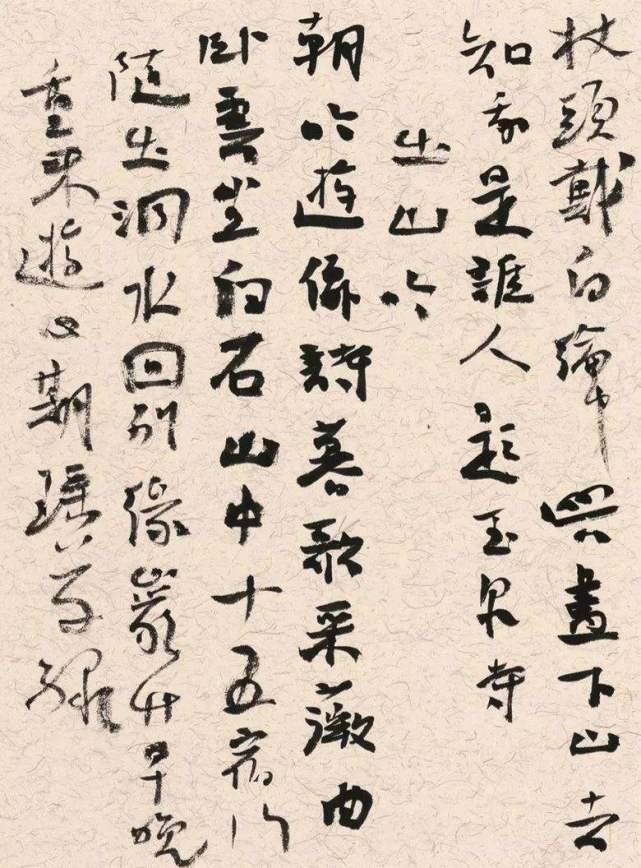 杖頭戴白綸巾興盡下山去
知我是誰人題玉泉寺
出山吟
朝吟遊僊詩暮歌采薇曲
臥雲坐白石山中十五宿行
隨出洞水回別緣巖竹早晚
重來遊心期瑤草綠